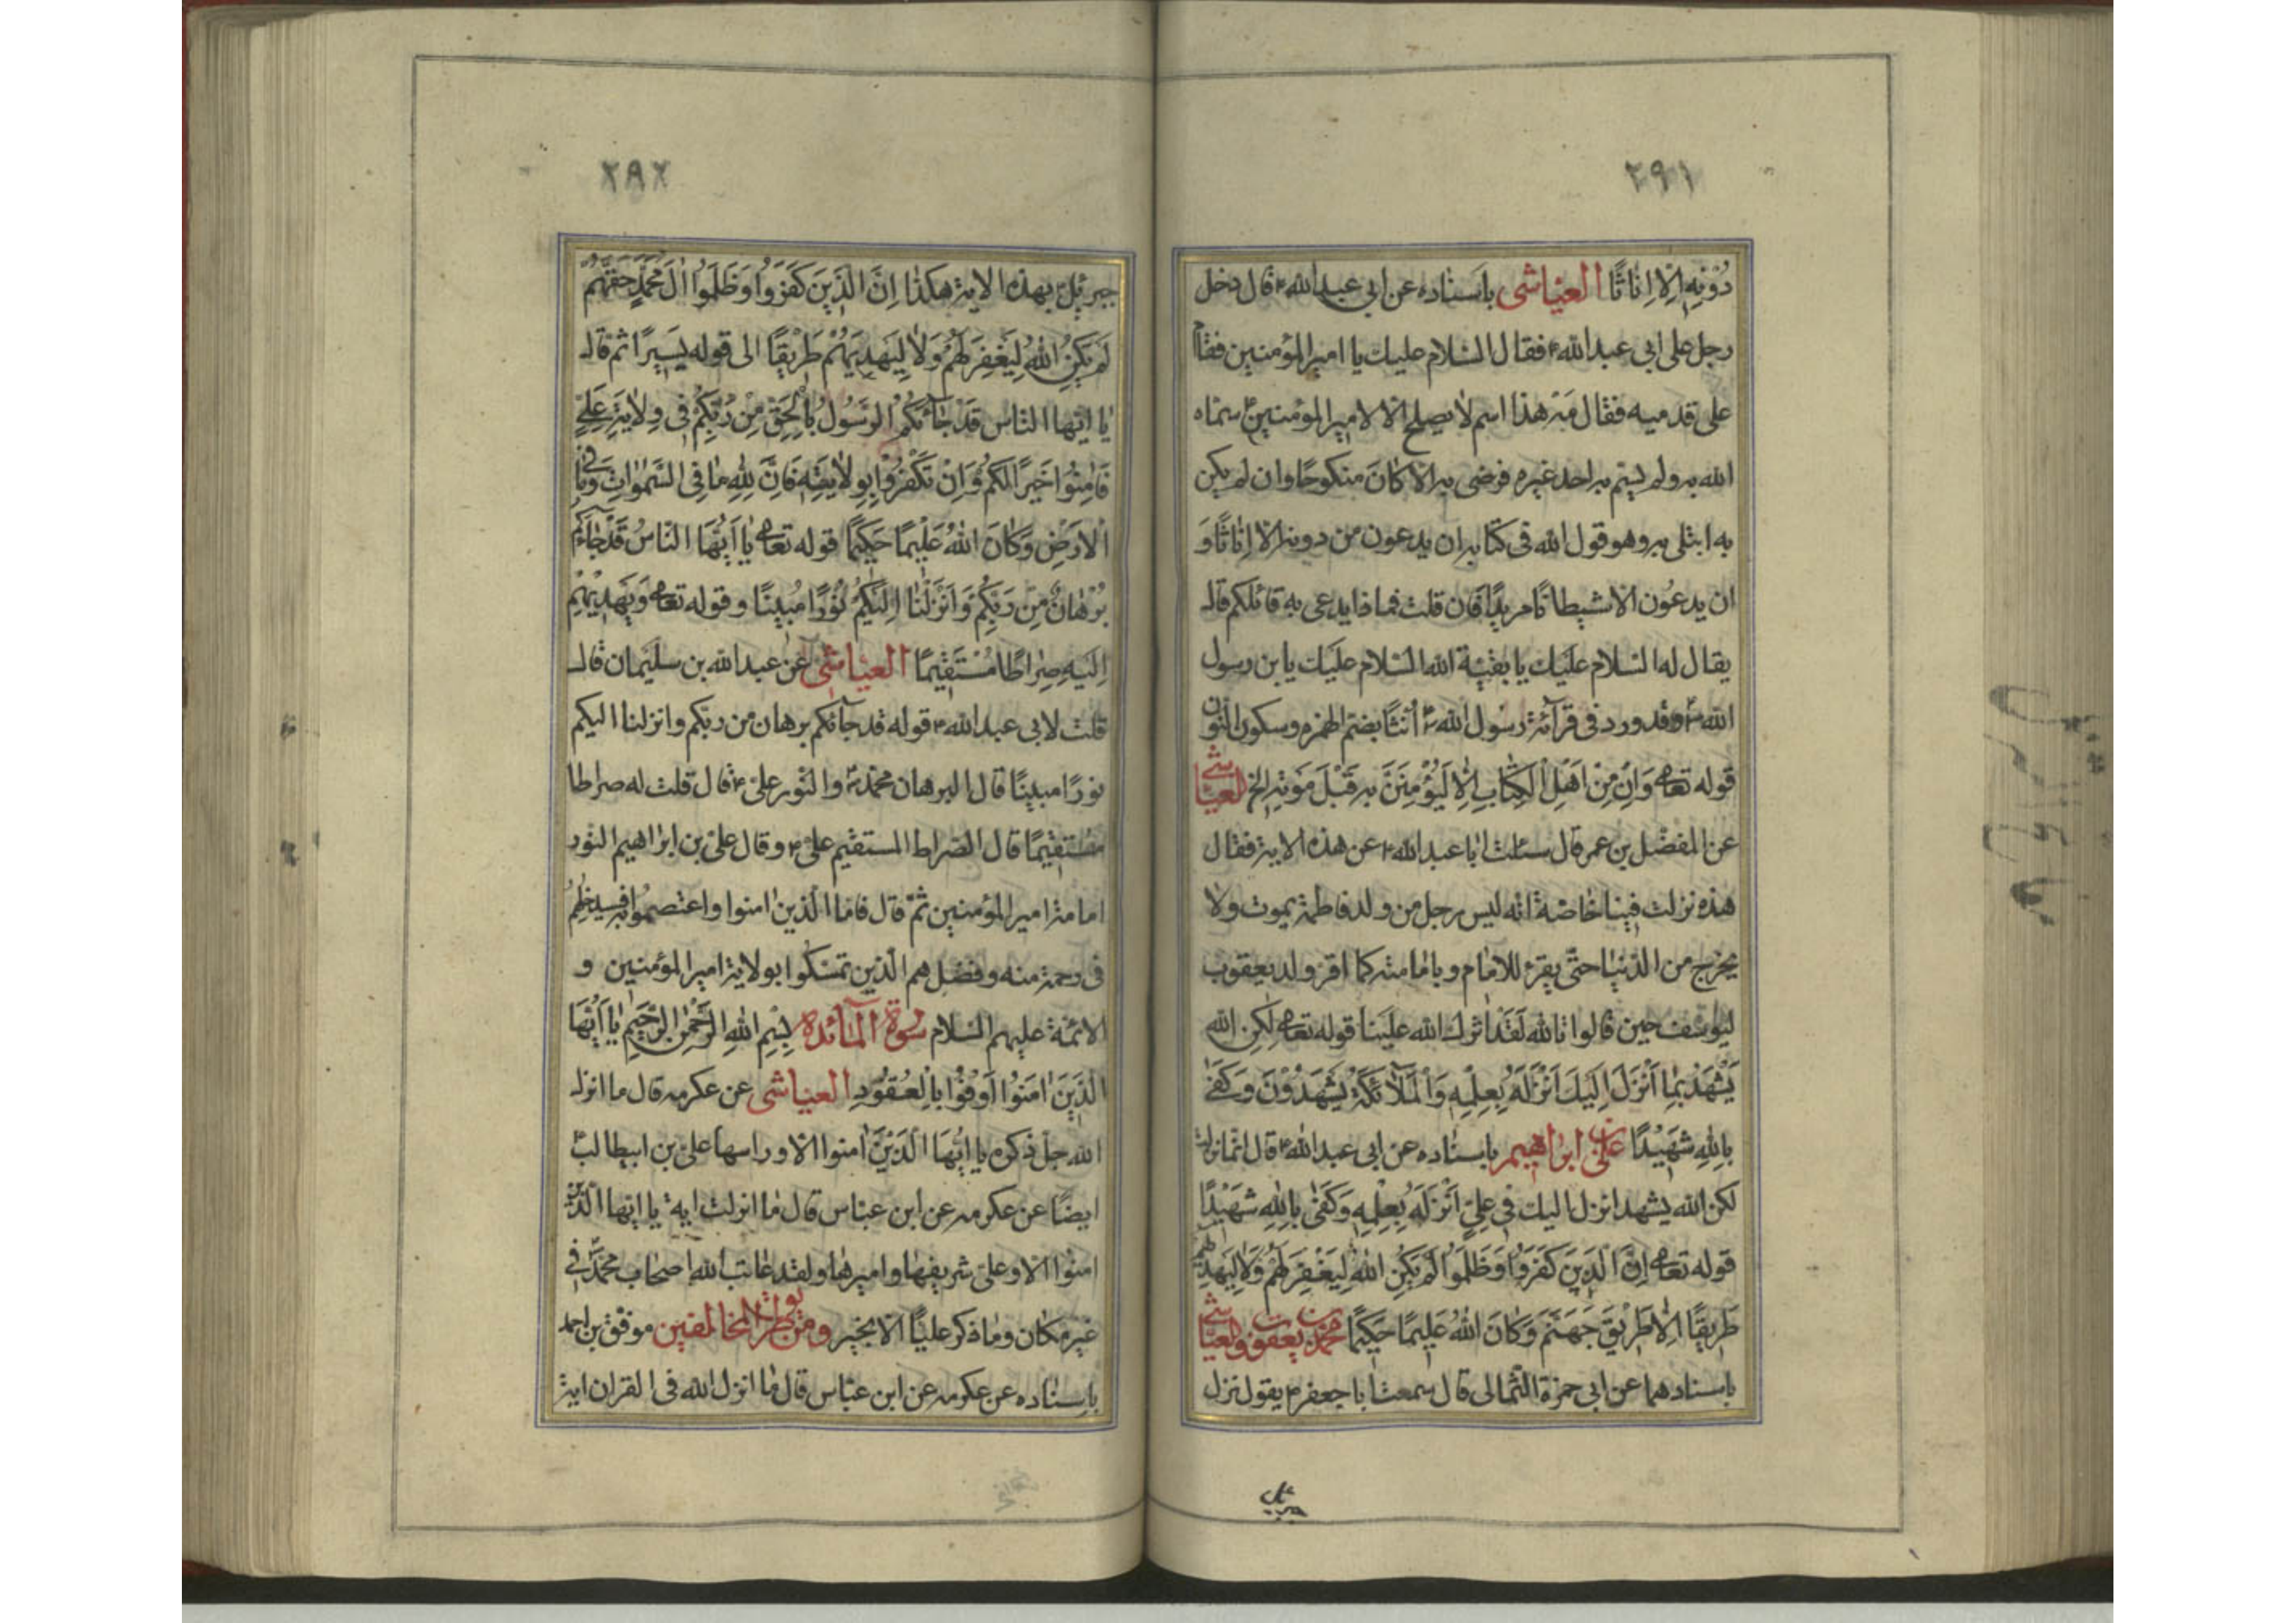 ٢٩١
دُوْنِهِ اِلَّا اِنَاثًا العیاشی باسناده عن ابی عبدالله ع قال دخل
رجل علی ابی عبدالله ع فقال السلام علیك یا امیر المؤمنین فقام
علی قدمیه فقال مه هذا اسم لا یصلح الا لامیر المؤمنین ع سماه
الله به ولم یسم به احد غیره فرضی به الا کان منکوحا وان لم یکن
به ابتلی به وهو قول الله فی کتابه ان یدعون من دونه الا اناثا و
ان یدعون الا شیطانا مریدا قان قلت فماذا یدعی به قائلکم قال
یقال له السلام علیك یا بقیة الله السلام علیك یابن رسول
الله ص وقد ورد فی قرآئة رسول الله ص أُنثا بضم الهمزه وسکون النون
قوله تعا وَاِنْ مِنْ اَهْلِ الْکِتَابِ اِلَّا لَیُؤْمِنَنَّ بِهِ قَبْلَ مَوْتِهِ الخ العیاشی
عن المفضل بن عمر قال سئلت ابا عبدالله ع عن هذه الایة فقال
هذه نزلت فینا خاصة انه لیس رجل من ولد فاطمة یموت ولا
یخرج من الدنیا حتی یقرء للامام و بامامته کما اقر ولد یعقوب
لیوسف حین قالوا تالله لقد اثرك الله علینا قوله تعا لٰکِنِ اللهُ
یَشْهَدُ بِمَا أَنْزَلَ اِلَیْكَ اَنْزَلَهُ بِعِلْمِهِ وَالْمَلَآئِکَةُ یَشْهَدُوْنَ وَکَفٰی
بِاللهِ شَهِیْدًا علی بن ابراهیم باسناده عن ابی عبدالله ع قال انما نزلت
لکن الله یشهد انزل الیك فی علی اَنْزَلَهُ بِعِلْمِهِ وَکَفٰی بِاللهِ شَهِیْدًا
قوله تعا اِنَّ الَّذِیْنَ کَفَرُوْا وَظَلَمُوْا لَمْ یَکُنِ اللهُ لِیَغْفِرَ لَهُمْ وَلَا لِیَهْدِیَهُمْ
طَرِیْقًا اِلَّا طَرِیْقَ جَهَنَّمَ وَکَانَ اللهُ عَلِیْمًا حَکِیْمًا محمد بن یعقوب والعیاشی
باسنادهما عن ابی حمزة الثمالی قال سمعت ابا جعفر ع یقول نزل
٢٩٢
جبرئیل بهذه الایة هکذا اِنَّ الَّذِیْنَ کَفَرُوْا وَظَلَمُوْا اٰلَ مُحَمَّدٍ حَقَّهُمْ
لَمْ یَکُنِ اللهُ لِیَغْفِرَ لَهُمْ وَلَا لِیَهْدِیَهُمْ طَرِیْقًا الی قوله یَسِیْرًا ثم قال
یا ایها الناس قَدْ جَآئَکُمُ الرَّسُوْلُ بِالْحَقِّ مِنْ رَبِّکُمْ فِی وِلَایَةِ عَلِیٍّ
فَاٰمِنُوْا خَیْرًا لَکُمْ وَاِنْ تَکْفُرُوْا بِوِلَایَتِهِ فَاِنَّ لِلهِ مَا فِی السَّمٰوَاتِ وَمَا فِی
الْاَرْضِ وَکَانَ اللهُ عَلِیْمًا حَکِیْمًا قوله تعا یَا اَیُّهَا النَّاسُ قَدْ جَاءَکُمْ
بُرْهَانٌ مِنْ رَبِّکُمْ وَاَنْزَلْنَا اِلَیْکُمْ نُوْرًا مُبِیْنًا وقوله تعا وَیَهْدِیْهِمْ
اِلَیْهِ صِرَاطًا مُسْتَقِیْمًا العیاشی عن عبدالله بن سلیمان قال
قلت لابی عبدالله ع قوله قد جآئکم برهان من ربکم وانزلنا الیکم
نورا مبینا قال البرهان محمد ص والنور علی ع قال قلت له صراطا
مستقیما قال الصراط المستقیم علی ع وقال علی بن ابراهیم النور
امامة امیر المؤمنین ثم قال فاما الذین امنوا واعتصموا به فسیدخلهم
فی رحمة منه وفضل هم الذین تمسکوا بولایة امیر المؤمنین و
الائمة علیهم السلام سورة المآئده بِسْمِ اللهِ الرَّحْمٰنِ الرَّحِیْمِ یَا اَیُّهَا
الَّذِیْنَ اٰمَنُوْا اَوْفُوْا بِالْعُقُوْدِ العیاشی عن عکرمه قال ما انزل
الله جل ذکره یا ایها الَّذِیْنَ اٰمنوا الا وراسها علی بن ابیطالب
ایضا عن عکرمه عن ابن عباس قال ما انزلت ایة یا ایها الذین
امنوا الا وعلی شریفها وامیرها ولقد عاتب الله اصحاب محمد ص فی
غیر مکان وما ذکر علیا الا بخیر ومن طریق المخالفین موفق بن احمد
باسناده عن عکرمه عن ابن عباس قال ما انزل الله فی القران ایة
جبرئیل